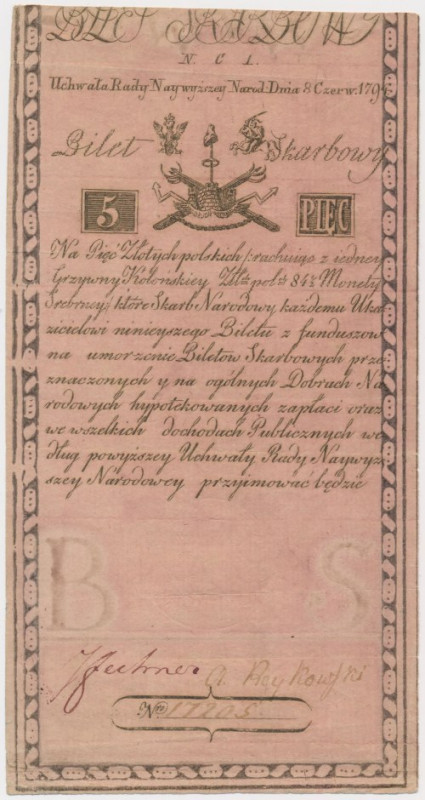 BILET SKARBOWY
N. C 1.
Uchwała Rady Naywyższey Narod: Dnia 8 Czerw. 1794
Bilet Skarbowy
5 PIĘC
Na Pięć Złotych polskich /: rachuiąc z iedney
Grzywny Kolońskiey Zł. pol. 84½ Monety
Srebrney/ które Skarb Narodowy każdemu Uka
zicielowi ninieyszego Biletu z funduszow
na umorzenie Biletów Skarbowych prze
znaczonych y na ogólnych Dobrach Na
rodowych hypotekowanych zapłaci oraz
we wszelkich dochodach Publicznych we
dług powyższey Uchwały Rady Naywyz
szey Narodowey przyjmować będzie
B S
Fechner A. Reykowski
Nro 17205